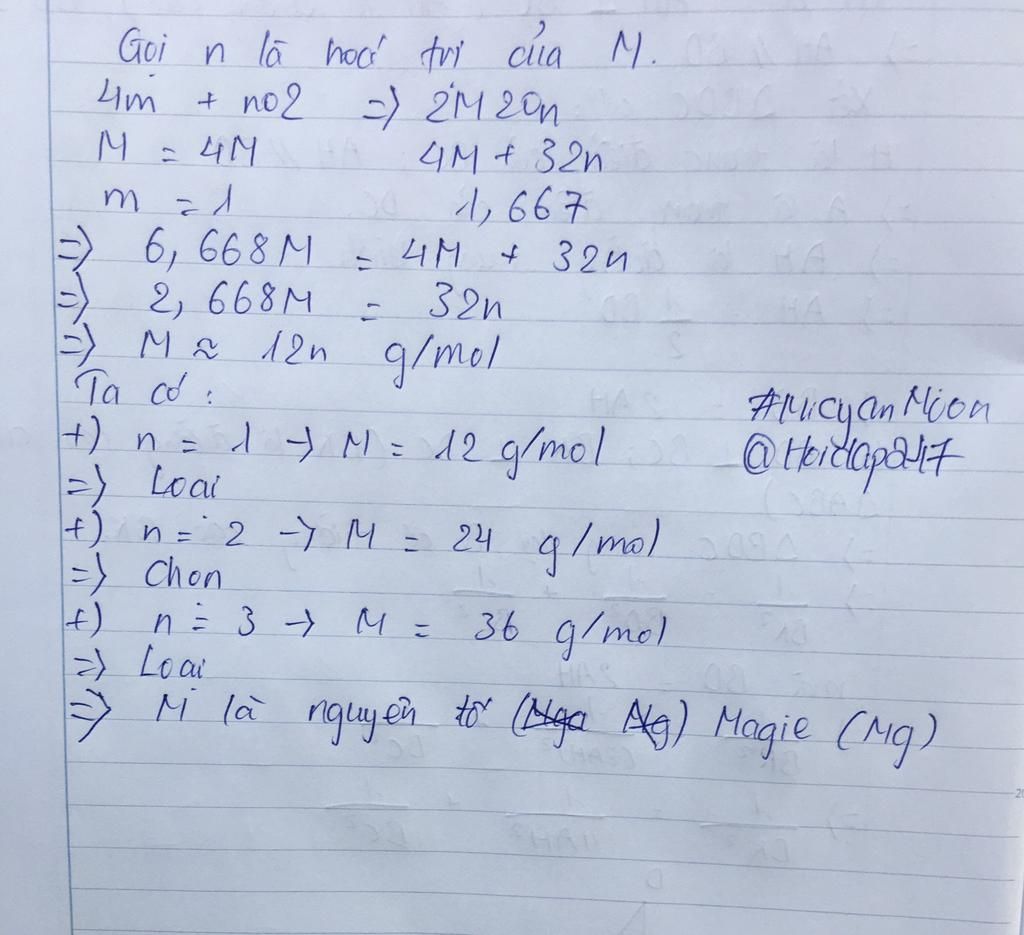 Gọi n là hoá trị của M.
4m + no2 => 2M2On
M = 4M 4M + 32n
m = 1 1,667
=> 6,668M = 4M + 32n
=> 2,668M = 32n
=> M ≈ 12n g/mol
Ta có :
#MicyanMoon
+) n = 1 -> M = 12 g/mol
@Hoidap247
=> Loại
+) n = 2 -> M = 24 g/mol
=> Chọn
+) n = 3 -> M = 36 g/mol
=> Loại
=> M là nguyên tố Magie (Mg)